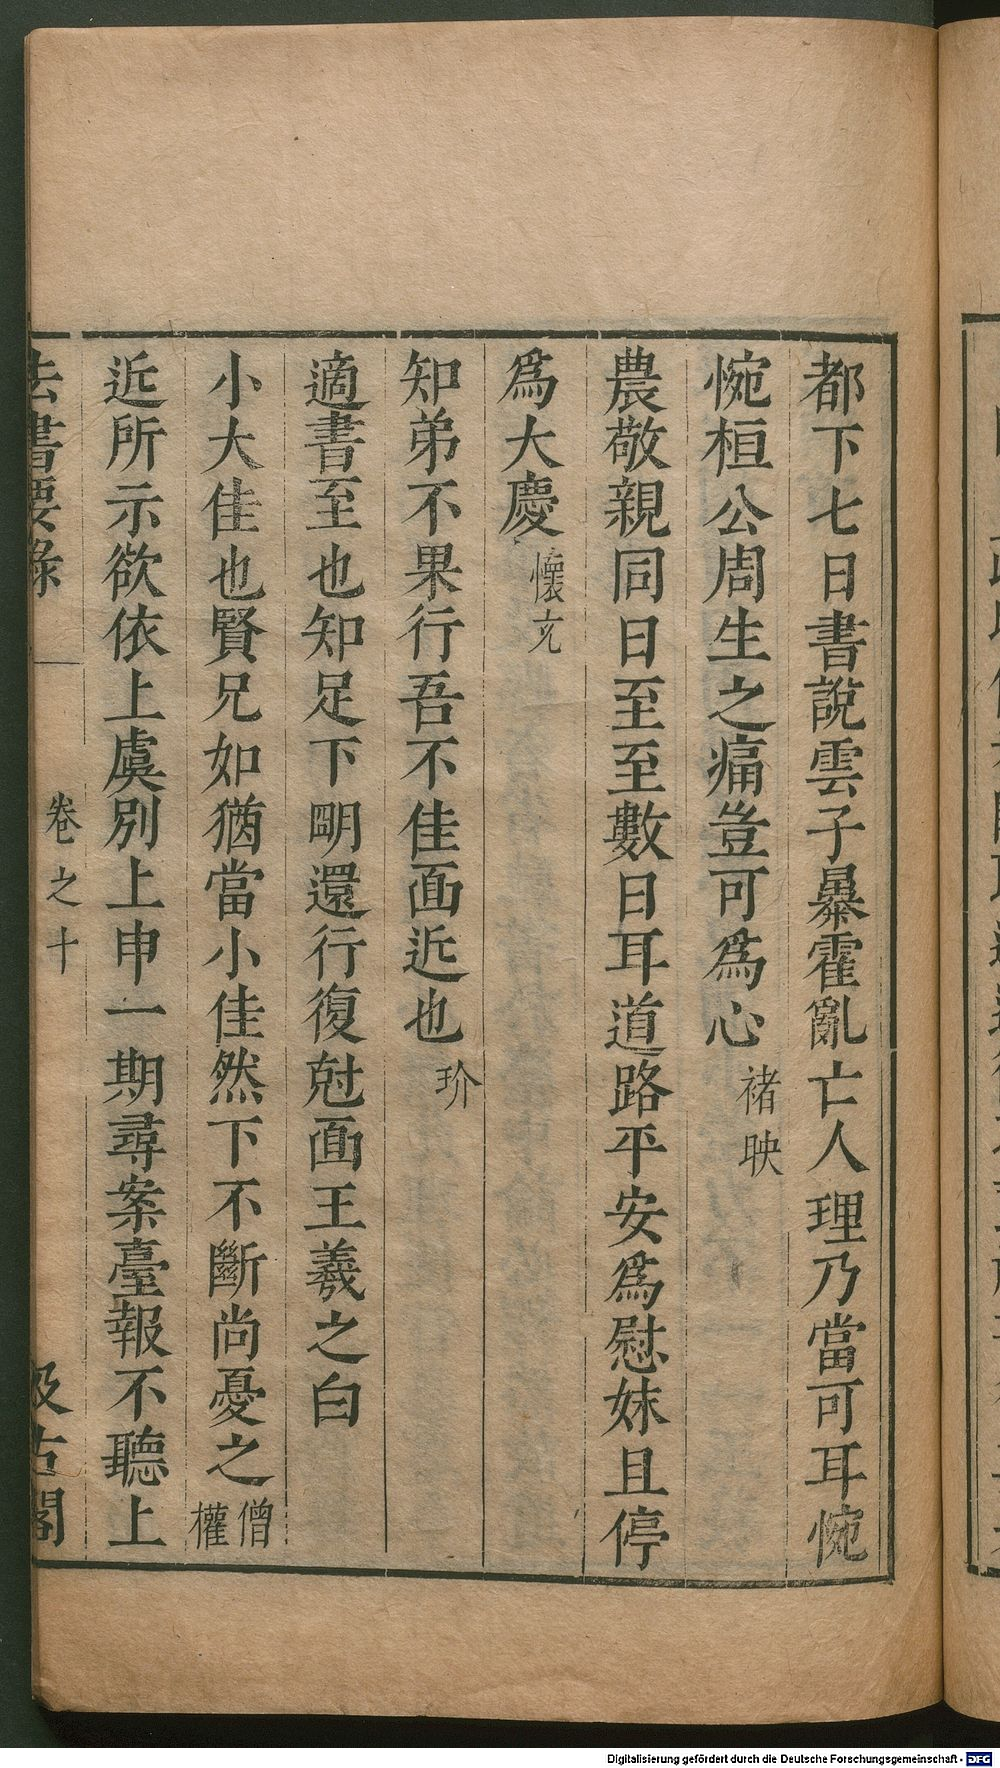 都下七日書說雲子暴霍亂亡人理乃當可耳惋
惋桓公周生之痛豈可爲心 褚 映
農敬親同日至至數日耳道路平安爲慰妹且停
爲大慶 懷充
知弟不果行吾不佳面近也 玠
適書至也知足下明還行復尅面王羲之白
小大佳也賢兄如猶當小佳然下不斷尚憂之 僧權
近所示欲依上虞別上申一期尋案臺報不聽上
法書要錄 卷之十 汲古閣
Digitalisierung gefördert durch die Deutsche Forschungsgemeinschaft - DFG